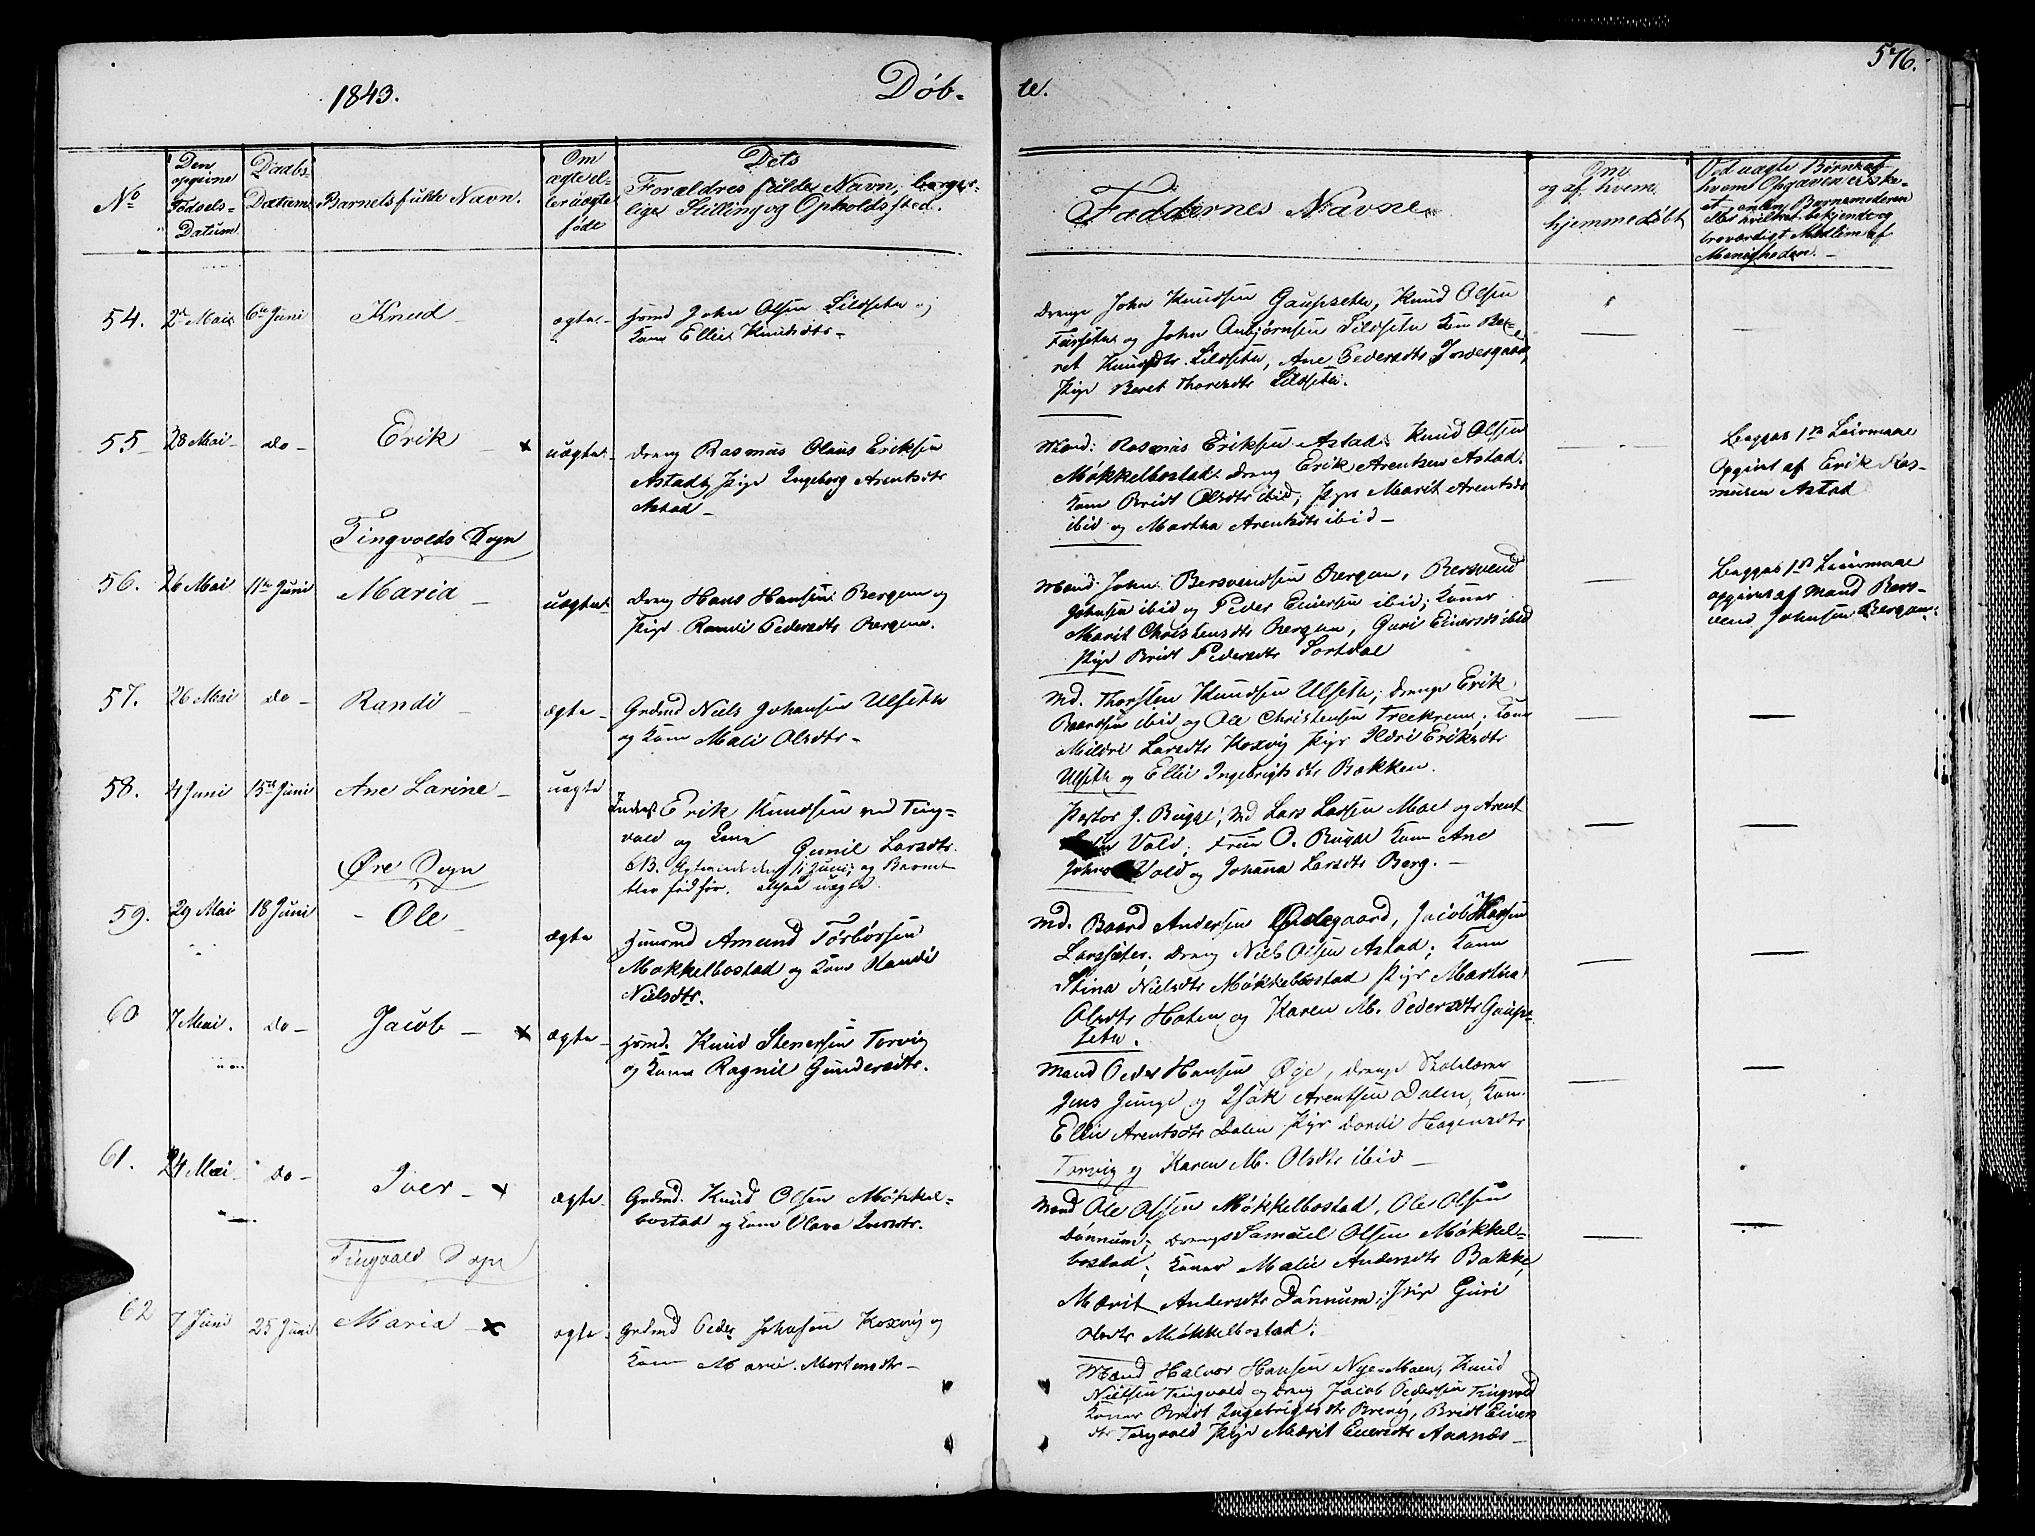 576.
1843.
Døb-
te.
No
Den opgivne Fødsels-Datum
Daabs-Datum
Barnets fulde Navn.
Om ægte el-ler uægte føde
Dets
Forældres fulde Navn, borger-
lige Stilling og Opholdssted.
Faddernes Navne
Om og af hvem hjemmedøbt
Ved uægte Børn af
hvem Opgaven er ske-
et
Menigheden.
54. 2 Mai 6te Juni Knud ægte
John Olsen Silsetu og
Kone Ellie Knudsdtr
Drenge John Knudsen Gaupsetu, Knud Olsen
og John Anbjørnsen Silsetu Kone Be-
ret Knudsdtr Silsetu, Ane Pedersdtr
Pige Beret Thoresdtr Silsetu.
55 28 Mai do Erik x uægte
Dreng Rasmus Olaus Eriksen
Astad, Pige Ingeborg Arentsdtr
Astad
Mand: Rasmus Eriksen Astad, Knud Olsen
Møkkelbostad. Dreng Erik Arentsen Astad.
Kone Bridt Olsdtr ibid; Pige Marit Arentsdtr
ibid og Martha Arentsdtr ibid
Begges 1ste Leiermaal
Opgivet af Erik Ras-
musen Astad
Tingvolds Sogn
56. 26 Mai 11te Juni Maria uægte
Dreng Hans Hansen Bergem og
Pige Randi Pedersdtr Bergem.
Mand: John Bersvendsen Bergem, Bersvend
Johnsen ibid og Peder Eversen ibid; Koner
Marit Christensdtr Bergem, Guri Eversdtr ibid
Pige Bridt Pedersdtr
Begges 1ste Leiermaal
opgivet af Mand Bers-
vend Johnsen Bergem.
57. 26 Mai do Randi ægte
Grdmd Niels Johansen Ulsetu
og Kone Mali Olsdtr
Md. Thorsten Knudsen Ulsetu; Drenge Erik
Baardsen ibid og Ole Christensen Treekrem; Kone
Mildri Larsdtr Koxvig Pige Ildri Eriksdtr
Ulsetu og Ellie Ingebrigtsdtr Bakken.
58. 4 Juni 15de Juni Ane Larine uægte
Inderst Erik Knudsen ved Ting-
vold og Kone Gunil Larsdtr.
NB. Juni; og Barnet
blev fød før. altsaa uægte.
Pastor J. Bugge; Md Lars Larsen Moe og Arent
Vold; Frue O. Bugge Kone Ane
Vold og Johana Larsdtr Berg.
Øre Sogn
59. 29 Mai 18 Juni Ole ægte
Huusmd Amund Torborsen
Møkkelbostad og Kone Randi
Nielsdtr.
Md. Baard Andersen Ødegaard, Jacob
Larssæter; Dreng Niels Olsen Astad; Kone
Stina Nielsdtr Møkkelbostad Pige Martha
Olsdtr Haten og Karen M. Pedersdtr Gaup-
setu.
60 7 Mai. do Jacob x ægte
Knud Stenersen Torvig
og Kone Ragnil Gundersdtr.
Mand Peder Hansen Øye, Drenge Skolelærer
Jens Junge og Isak Arentsen Dalen, Kone
Ellie Arentsdtr Dalen Pige Dordi Hagensdtr
Torvig og Karen M. Olsdtr ibid
61. 24 Mai do Iver x ægte
Grdmd. Knud Olsen Møkkel-
bostad og Kone Olava Iversdtr.
Mand Ole Olsen Møkkelbostad, Ole Olsen
Dønnum; Dreng Samuel Olsen Møkkel-
bostad; Koner Malie Andersdtr Bakke,
Marit Andersdtr Dønnum; Pige Guri
Olsdtr Møkkelbostad.
Tingvold Sogn
62 7 Juni 25 Juni Maria x ægte
Grdmd Peder Johnsen Koxvig og
Kone Marie Mortensdtr
Mand Halvor Hansen Nye-Moen, Knud
Nielsen Tingvold og Dreng Jacob Pedersen Tingvold
Koner Bridt Ingebrigtsdtr Brevig, Bridt Ever-
dtr Tingvold Pige Marit Eversdtr Aanæs